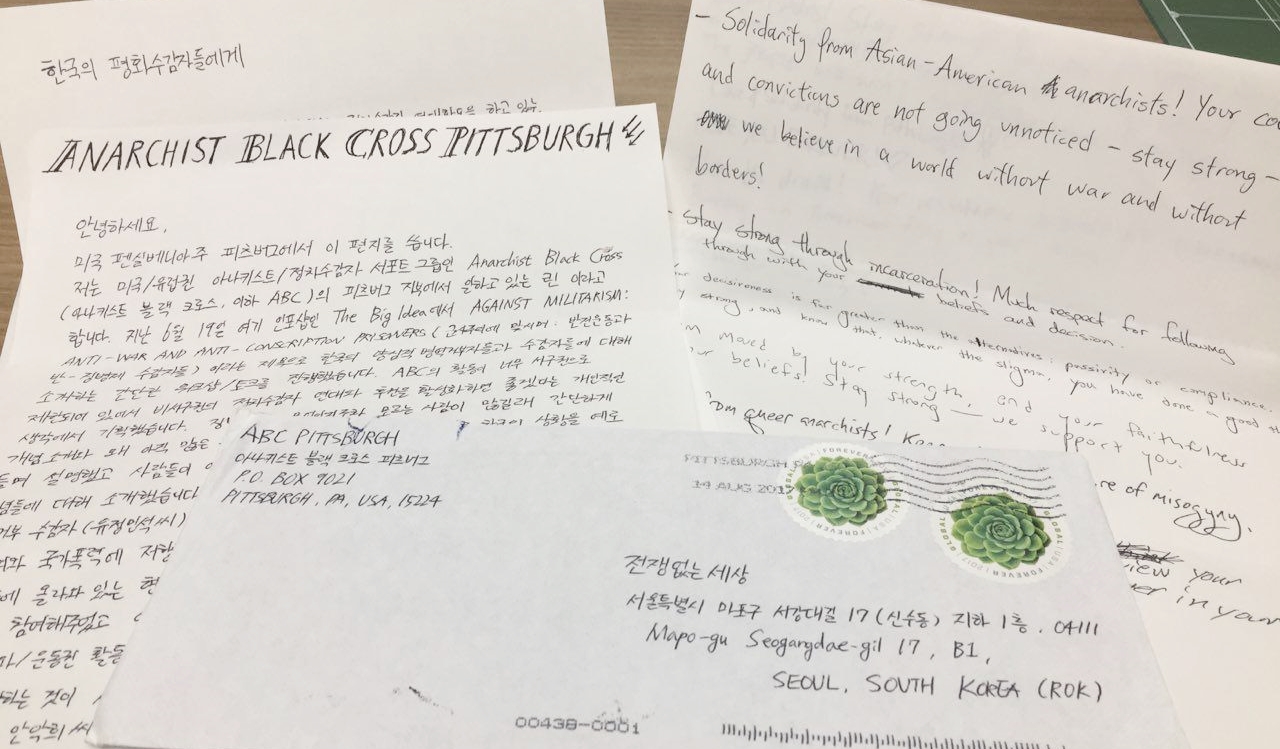 한국의 평화수감자들에게
하고 있는
ANARCHIST BLACK CROSS PITTSBURGH
안녕하세요.
미국 펜실베니아주 피츠버그에서 이 편지를 씁니다.
저는 미국/유럽권 아나키스트/정치수감자 서포트 그룹인 Anarchist Black Cross
(아나키스트 블랙 크로스, 이하 ABC)의 피츠버그 지부에서 일하고 있는 린 이라고
합니다. 지난 6월 19일 여기 인포샵인 The Big Idea에서 AGAINST MILITARISM:
ANTI-WAR AND ANTI-CONSCRIPTION PRISONERS (군사주의에 맞서며: 반전운동과
반-징병제 수감자들) 이라는 제목으로 한국의 양심적 병역거부자들과 수감자들에 대해
소개하는 간단한 워크샵/토크를 진행했습니다. ABC의 활동이 너무 서구권으로
제한되어 있어서 비서구권의 정치수감자 연대와 후원을 활성화하면 좋겠다는 개인적인
생각에서 기획했습니다.
모르는 사람이 많길래 간단하게
개념소개와 왜 아직 많은
상황을 예로
들며 설명했고 사람들이
념들에 대해 소개했습니다
거부 수감자 (유정민석씨)
국가폭력에 저항
에 올라와 있는
참여해주었고
/운동권 활동
하는 것이
안악희씨
- Solidarity from Asian-American anarchists! Your
and convictions are not going unnoticed - stay strong -
we believe in a world without war and without
borders!
- stay strong through incarceration! Much respect for following
through with your beliefs and decision.
decisiveness is far greater than the alternatives: passivity or compliance.
strong, and know that, whatever the stigma, you have done a good
moved by your strength, and your faithfulness
beliefs! Stay strong - we support you.
queer anarchists!
of misogyny.
view your
in your
ABC PITTSBURGH
아나키스트 블랙 크로스 피츠버그
P.O. BOX 9021
PITTSBURGH, PA, USA, 15224
PITTSBURGH
14 AUG 2017
GLOBAL USA FOREVER 2017
GLOBAL USA FOREVER 2017
전쟁없는세상
서울특별시 마포구 서강대길 17 (신수동) 지하 1층. 04111
Mapo-gu Seogangdae-gil 17, B1,
SEOUL, SOUTH KOREA (ROK)
00438-0001